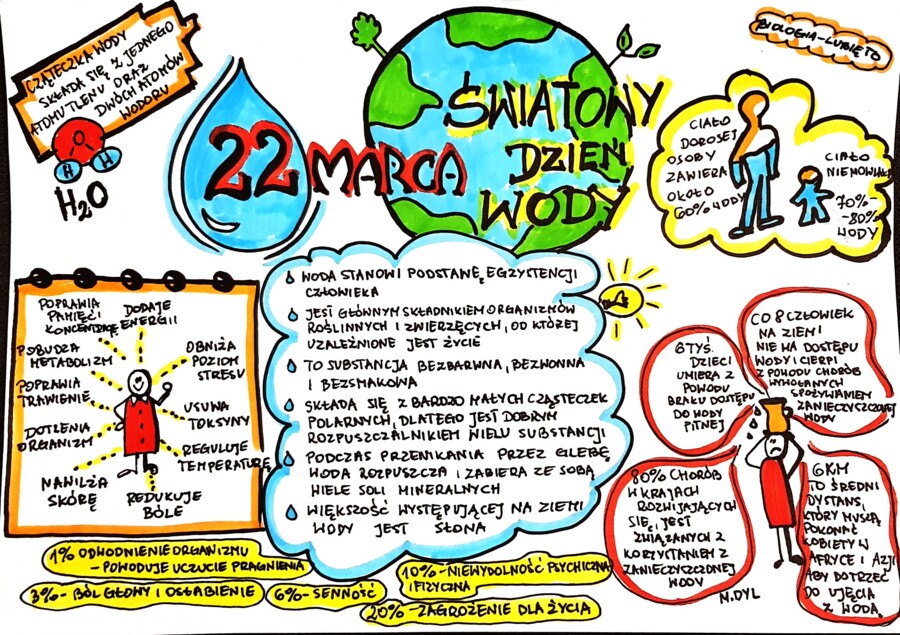 CZĄSTECZKA WODY
SKŁADA SIĘ Z JEDNEGO
ATOMU TLENU ORAZ
DWÓCH ATOMÓW
WODORU
O
H H
H2O
22 MARCA
ŚWIATOWY
DZIEŃ
WODY
BIOLOGIA-LUBIĘTO
CIAŁO
DOROSEJ
OSOBY
ZAWIERA
OKOŁO
60% WODY
CIAŁO
NIEMOWLAKA
70%-
-80%
WODY
POPRAWIA
PAMIĘCI
KONCENTRACJE
DODAJE
ENERGII
POBUDZA
METABOLIZM
OBNIŻA
POZIOM
STRESU
POPRAWIA
TRAWIENIE
USUWA
TOKSYNY
DOTLENIA
ORGANIZM
REGULUJE
TEMPERATURĘ
NAWILŻA
SKÓRĘ
REDUKUJE
BÓLE
WODA STANOWI PODSTAWĘ EGZYSTENCJI
CZŁOWIEKA
JEST GŁÓWNYM SKŁADNIKIEM ORGANIZMÓW
ROŚLINNYCH I ZWIERZĘCYCH, OD KTÓREJ
UZALEŻNIONE JEST ŻYCIE
TO SUBSTANCJA BEZBARWNA, BEZWONNA
I BEZSMAKOWA
SKŁADA SIĘ Z BARDZO MAŁYCH CZĄSTECZEK
POLARNYCH, DLATEGO JEST DOBRYM
ROZPUSZCZALNIKIEM WIELU SUBSTANCJI
PODCZAS PRZENIKANIA PRZEZ GLEBĘ
WODA ROZPUSZCZA I ZABIERA ZE SOBĄ
WIELE SOLI MINERALNYCH
WIĘKSZOŚĆ WYSTĘPUJĄCEJ NA ZIEMI
WODY JEST SŁONA
6 TYŚ.
DZIECI
UMIERA Z
POWODU
BRAKU DOSTĘPU
DO WODY
PITNEJ
CO 8 CZŁOWIEK
NA ZIEMI
NIE MA DOSTĘPU
WODY I CIERPI
Z POWODU CHORÓB
WYWOŁANYCH
SPOŻYWANIEM
ZANIECZYSZCZONEJ
WODY
80% CHORÓB
W KRAJACH
ROZWIJAJĄCYCH
SIĘ, JEST
ZWIĄZANYCH Z
KORZYSTANIEM Z
ZANIECZYSZCZONEJ
WODY
6KM
TO ŚREDNI
DYSTANS,
KTÓRY MUSZĄ
POKONAĆ
KOBIETY W
AFRYCE I AZJI
ABY DOTRZEĆ
DO UJĘCIA
Z WODĄ.
M.DYL
1% ODWODNIENIE ORGANIZMU
- POWODUJE UCZUCIE PRAGNIENIA
3%- BÓL GŁOWY I OSŁABIENIE
6%- SENNOŚĆ
10%-NIEWYDOLNOŚĆ PSYCHICZNA
I FIZYCZNA
20%-ZAGROŻENIE DLA ŻYCIA